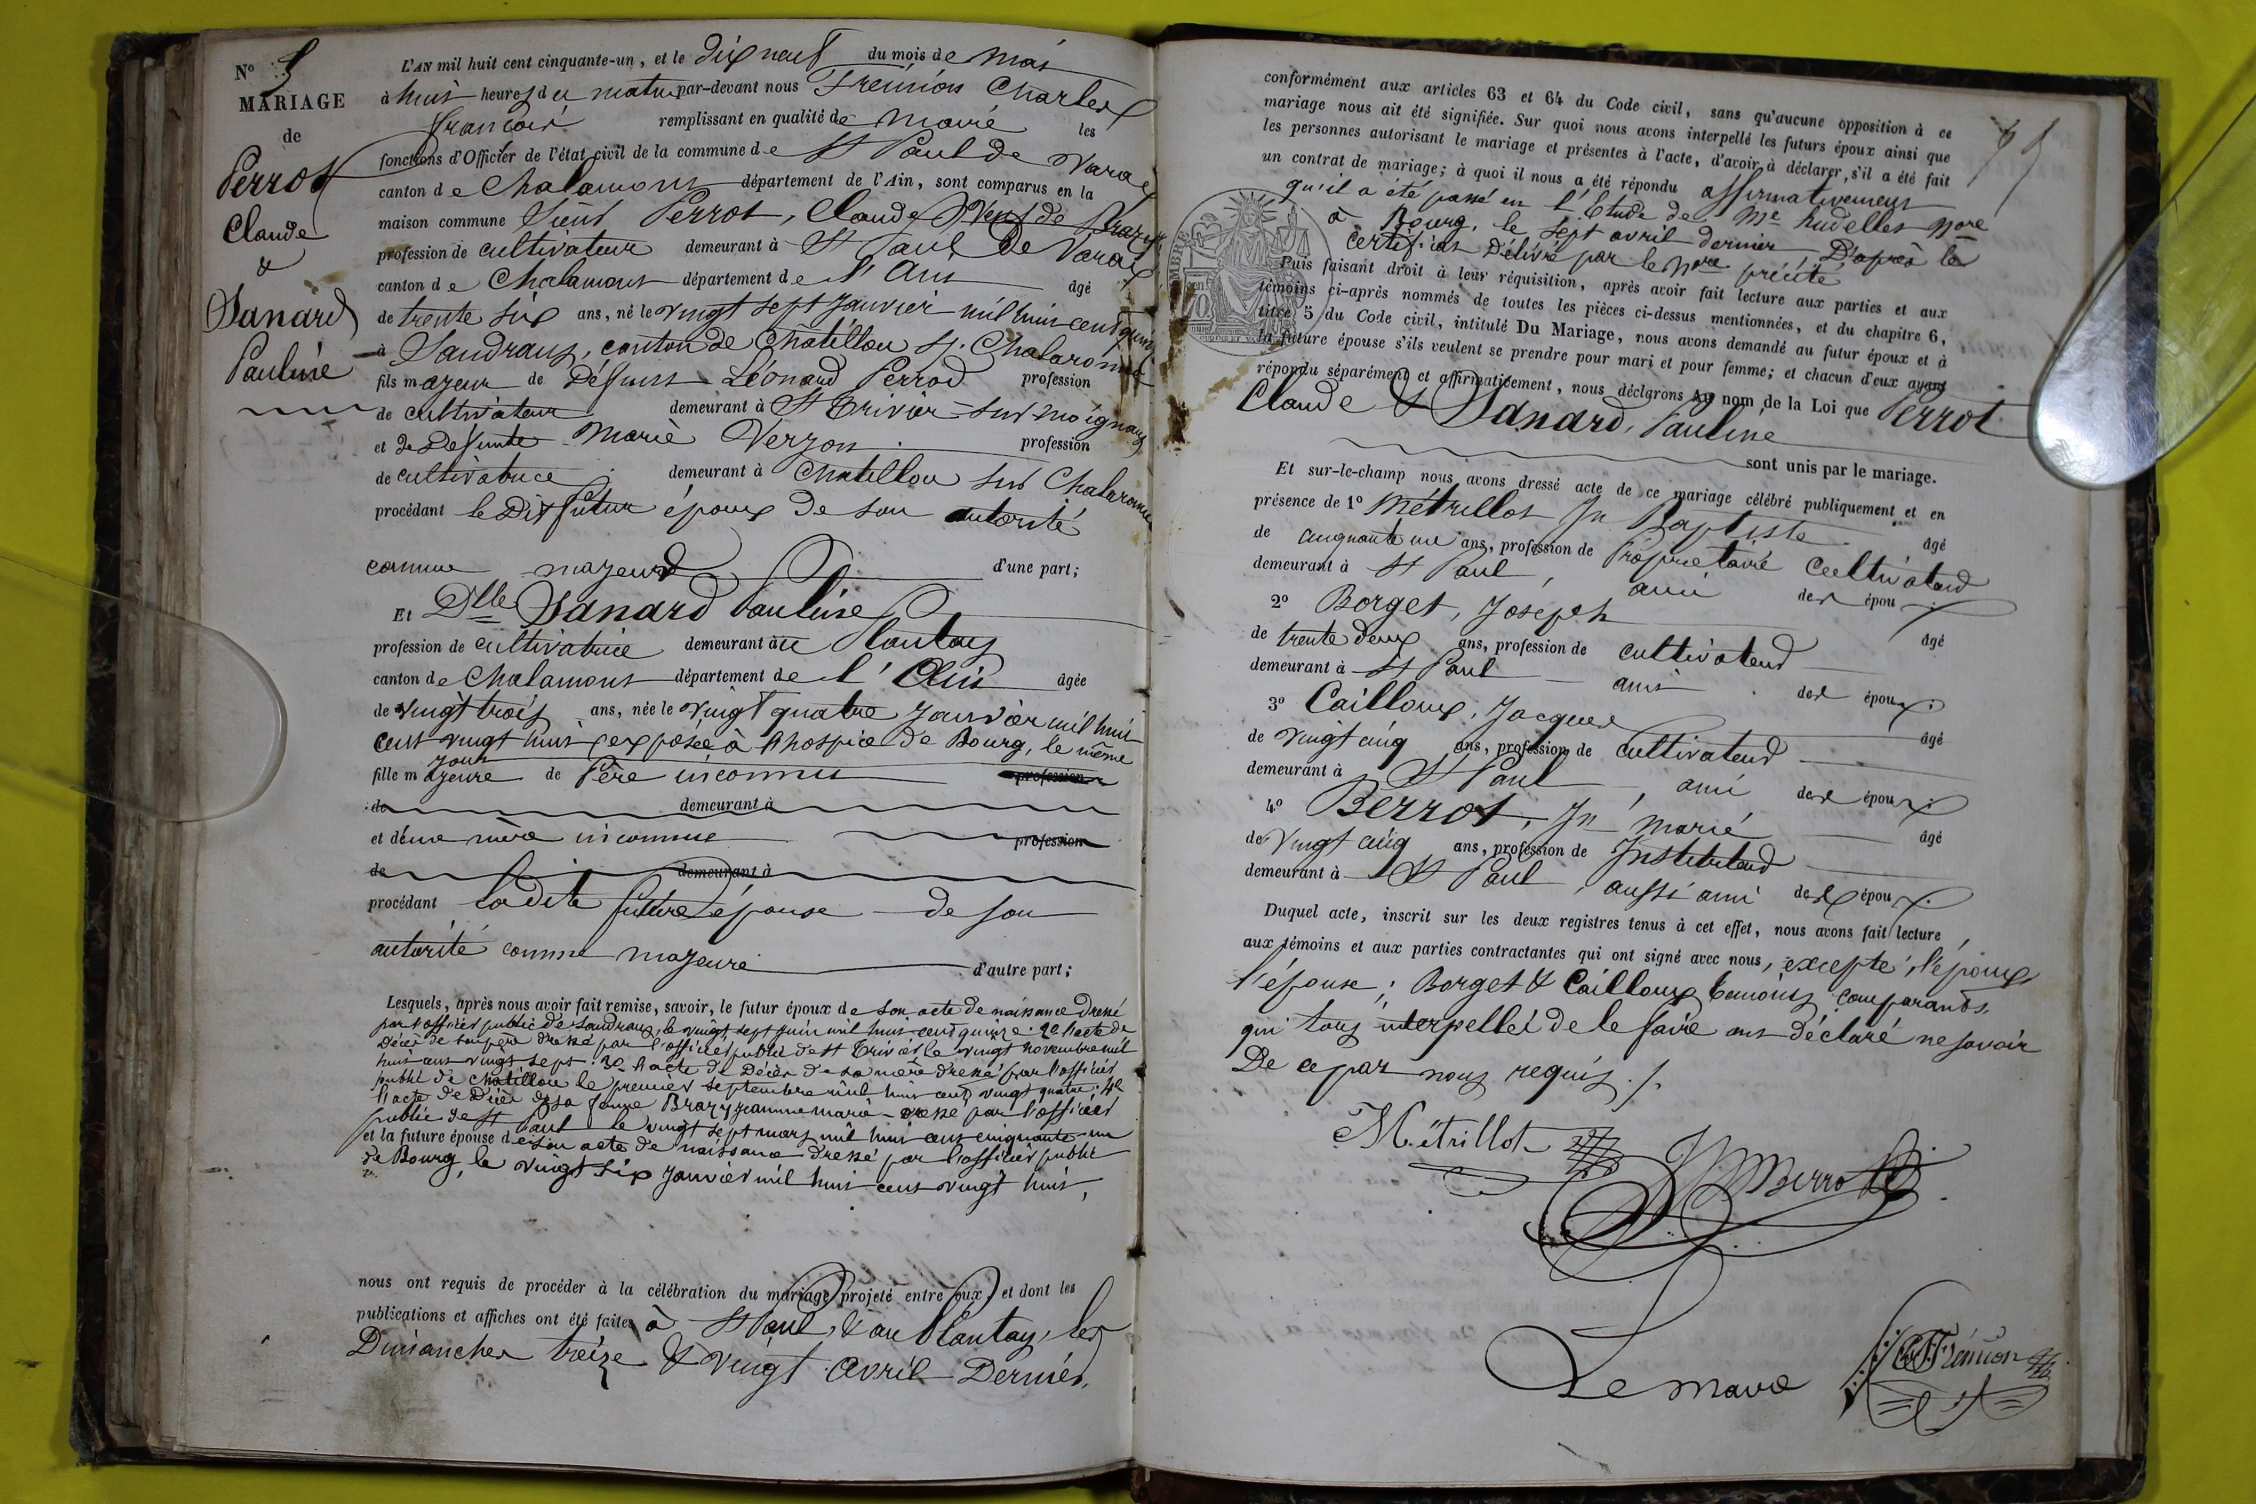 N° 5
MARIAGE
de
Perrot
Claude
&
Sanard
Pauline
L'AN mil huit cent cinquante-un, et le dix neuf du mois de mai
à huit heures du matin par-devant nous Fremion Charles
françois remplissant en qualité de maire les
fonctions d'Officier de l'état civil de la commune de St Paul de Varax
canton de Chalamont département de l'Ain, sont comparus en la
maison commune Sieur Perrot, Claude Veuf de Brazy
profession de cultivateur demeurant à St Paul De Varax
canton de Chalamont département de l'Ain âgé
de trente six ans, né le vingt sept janvier mil huit cent quinze
à Sandrans, canton de Châtillon s/. Chalaronne
fils majeur de défunt Léonard Perrod profession
de cultivateur demeurant à St Trivier-sur-moignans
et de Defunte Marie Verzon profession
de cultivatrice demeurant à Chatillon sur Chalaronne
procédant le Dit futur époux de son autorité
comme majeur d'une part;
Et Dlle Sanard Pauline
profession de cultivatrice demeurant au Plantay
canton de Chalamont département de l'Ain âgée
de vingt trois ans, née le vingt quatre janvier mil huit
cent vingt huit exposée à l'hospice de Bourg, le même
jour
fille majeure de Père inconnu profession
de demeurant à
et d'une mère inconnue profession
de demeurant à
procédant ladite future épouse de son
autorité comme majeure d'autre part;
Lesquels, après nous avoir fait remise, savoir, le futur époux de son acte de naissance dressé
par l'officier public de Sandrans, le vingt sept juin mil huit cent quinze. 2e l'acte de
Décès de son père dressé par l'officier public de St Trivier le vingt novembre mil
huit cent vingt sept. 3e l'acte de Décès de sa mère dressé par l'officier
public de Chatillon le premier septembre mil huit cent vingt quatre; 4e
l'acte de Décès de sa femme Brazy jeanne marie dressé par l'officier
public de St Paul le vingt sept mars mil huit cent cinquante-un
et la future épouse de son acte de naissance dressé par l'officier public
de Bourg, le vingt six janvier mil huit cent vingt huit,
nous ont requis de procéder à la célébration du mariage projeté entre eux, et dont les
publications et affiches ont été faites à St Paul, & au Plantay, les
Dimanches treize & vingt avril Dernier,
conformément aux articles 63 et 64 du Code civil, sans qu'aucune opposition à ce
mariage nous ait été signifiée. Sur quoi nous avons interpellé les futurs époux ainsi que
les personnes autorisant le mariage et présentes à l'acte, d'avoir à déclarer, s'il a été fait
un contrat de mariage; à quoi il nous a été répondu affirmativement
qu'il a été passé en l'Etude de Me hudelles Nore
à Bourg, le sept avril dernier D'après le
certificat Délivré par le Nore précité
Puis faisant droit à leur réquisition, après avoir fait lecture aux parties et aux
témoins ci-après nommés de toutes les pièces ci-dessus mentionnées, et du chapitre 6,
titre 5 du Code civil, intitulé Du Mariage, nous avons demandé au futur époux et à
la future épouse s'ils veulent se prendre pour mari et pour femme; et chacun d'eux ayant
répondu séparément et affirmativement, nous déclarons au nom de la Loi que Perrot
Claude & Sanard, Pauline
sont unis par le mariage.
Et sur-le-champ nous avons dressé acte de ce mariage célébré publiquement et en
présence de 1° Métrillot Jn Baptiste âgé
de cinquante un ans, profession de Propriétaire Cultivateur
demeurant à St Paul, ami des époux
2° Borget, Joseph âgé
de trente deux ans, profession de cultivateur
demeurant à St Paul ami des époux.
3° Cailloux, Jacques âgé
de vingt cinq ans, profession de cultivateur
demeurant à St Paul, ami des époux.
4° Berrot, Jn marie âgé
de vingt cinq ans, profession de Instituteur
demeurant à St Paul, aussi ami des époux.
Duquel acte, inscrit sur les deux registres tenus à cet effet, nous avons fait lecture
aux témoins et aux parties contractantes qui ont signé avec nous, excepté, l'époux
l'épouse; Borget & Cailloux témoins comparants,
qui tous interpellés de le faire ont déclaré ne savoir
De ce par nous requis ./.
Métrillot
Berrot
Le maire
Frémion